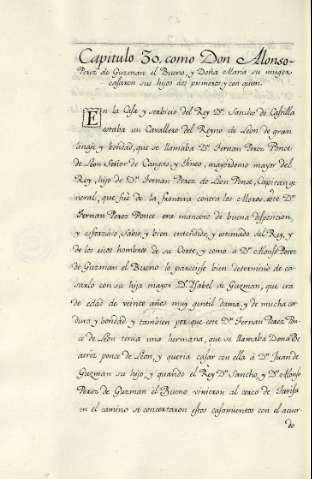 Capitulo 30. como Don Alonso
Perez de Guzman el Bueno, y Doña Maria su muger
casaron sus hijos dos primeros y con quien.
En la Casa y servicio del Rey Dn. Sancho de Castilla
estaba un Cavallero del Reyno de Leon de gran
linage y bondad, que se llamaba Dn. Fernan Perez Ponce
de Leon Señor de Cangas, y Tineo, mayordomo mayor del
Rey, hijo de Dn. Fernan Perez de Leon Ponce, Capitan ge
neral, que fué de la frontera contra los Moros, este Dn.
Fernan Perez Ponce era mancebo de buena disposicion,
y esforzado, Sabio, y bien entendido, y estimado del Rey, y
de los ricos hombres de su Corte, y como á Dn. Alonso Perez
de Guzman el Bueno le pareciese bien determinó de ca-
sarlo con su hija mayor Da. Ysabel de Guzman, que era
de edad de veinte años muy gentil dama, y de mucha cor
dura y bondad y tambien por que este Dn. Fernan Perez Pon
ce de Leon tenia una hermana, que se llamaba Doña Be
atriz ponce de Leon, y queria casar con ella á Dn. Juan de
Guzman su hijo, y quando el Rey Dn. Sancho, y Dn. Alonso
Perez de Guzman el Bueno vinieron al cerco de Tarifa
en el camino se concertaron estos casamientos con el acuer
do